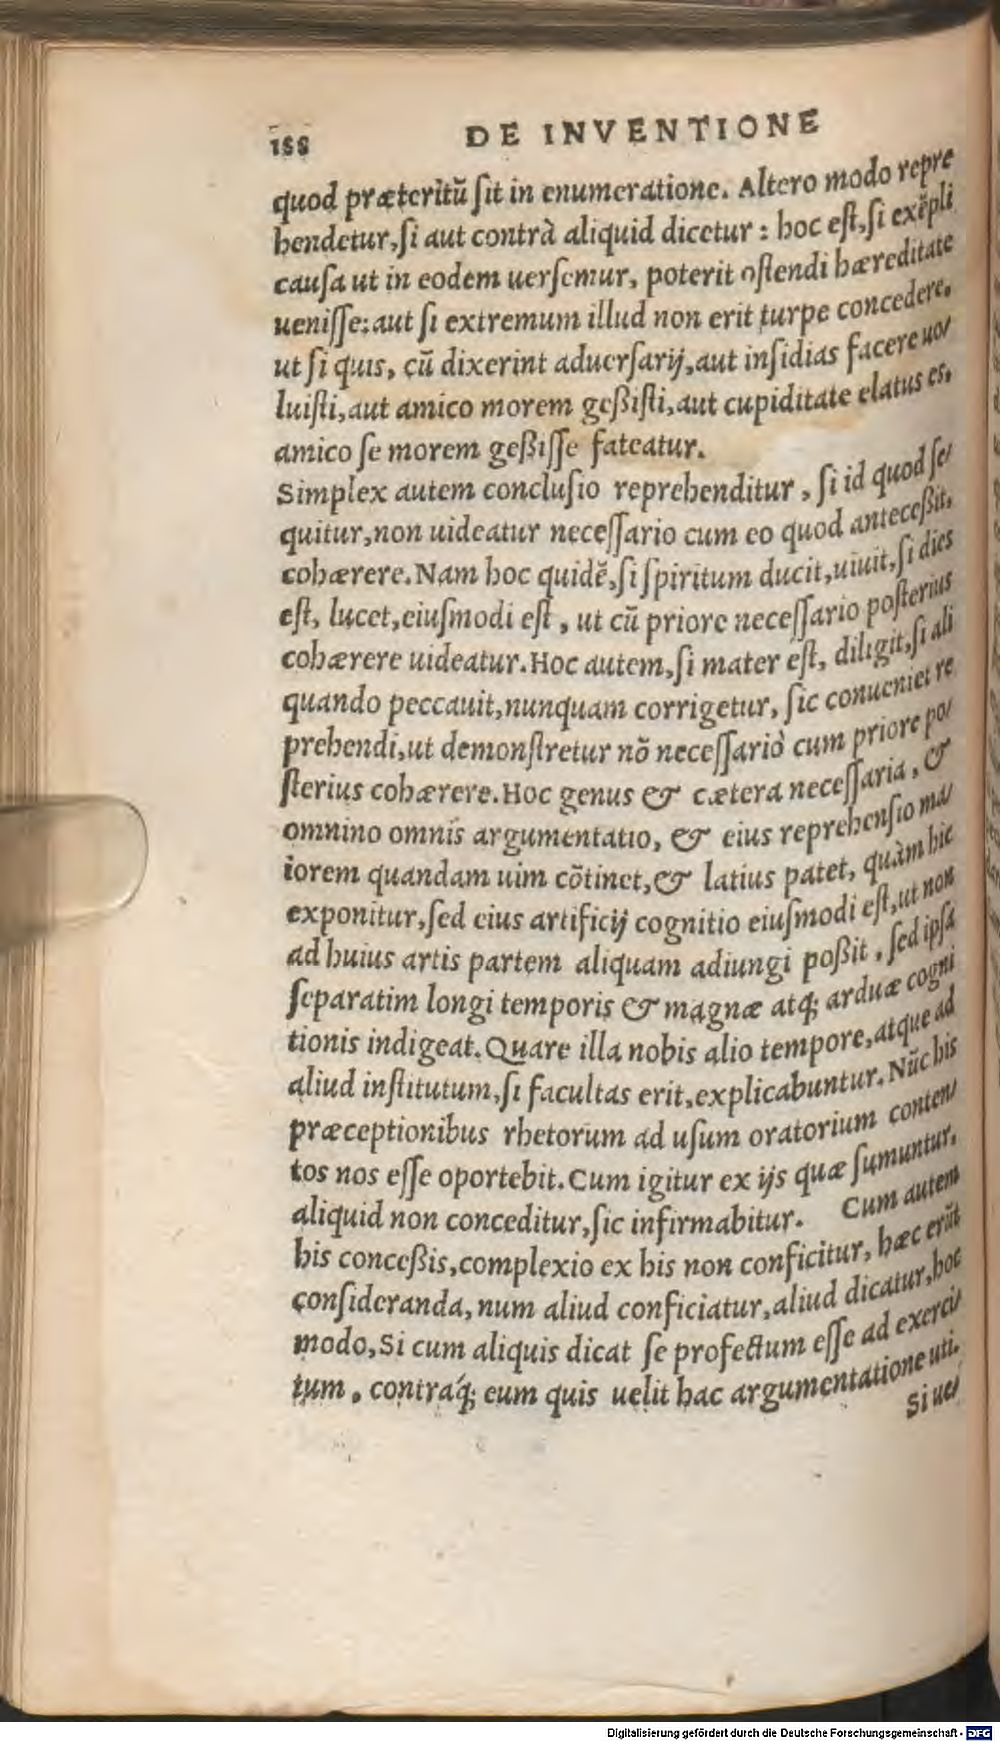 188 DE INVENTIONE
quod præteritũ ſit in enumeratione. Altero modo repre
hendetur,ſi aut contrà aliquid dicetur : hoc eſt,ſi exẽpli
cauſa ut in eodem uerſemur, poterit oſtendi hæreditate
ueniſſe: aut ſi extremum illud non erit turpe concedere.
ut ſi quis, cũ dixerint aduerſarij,aut inſidias facere uo/
luiſti,aut amico morem geßiſti,aut cupiditate elatus es.
amico ſe morem geßiſſe fateatur.
Simplex autem concluſio reprehenditur, ſi id quod ſe/
quitur,non uideatur neceſſario cum eo quod anteceßit.
cohærere.Nam hoc quidẽ,ſi ſpiritum ducit,uiuit,ſi dies
eſt, lucet,eiuſmodi eſt, ut cũ priore neceſſario poſterius
cohærere uideatur.Hoc autem,ſi mater eſt, diligit,ſi ali
quando peccauit,nunquam corrigetur, ſic conueniet re
prehendi,ut demonſtretur nõ neceſſariò cum priore po/
ſterius cohærere.Hoc genus & cætera neceſſaria, &
omnino omnis argumentatio, & eius reprehenſio ma/
iorem quandam uim cõtinet,& latius patet, quàm hic
exponitur,ſed eius artificij cognitio eiuſmodi eſt,ut non
ad huius artis partem aliquam adiungi poßit, ſed ipſa
ſeparatim longi temporis & magnæ atq; arduæ cogni
tionis indigeat.Quare illa nobis alio tempore,atque ad
aliud inſtitutum,ſi facultas erit,explicabuntur.Nũc his
præceptionibus rhetorum ad uſum oratorium conten/
tos nos eſſe oportebit.Cum igitur ex ijs quæ ſumuntur.
aliquid non conceditur,ſic infirmabitur. Cum autem
his conceßis,complexio ex his non conficitur, hæc erũt
conſideranda, num aliud conficiatur,aliud dicatur,hoc
modo,Si cum aliquis dicat ſe profectum eſſe ad exerci/
tum, contraq́; eum quis uelit hac argumentatione uti.
Si ue/
Digitalisierung gefördert durch die Deutsche Forschungsgemeinschaft - DFG